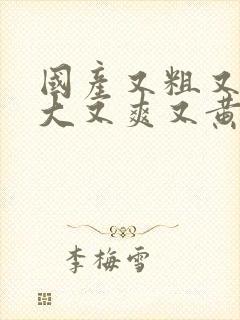 國產又粗又
大又爽又黃
李梅雪